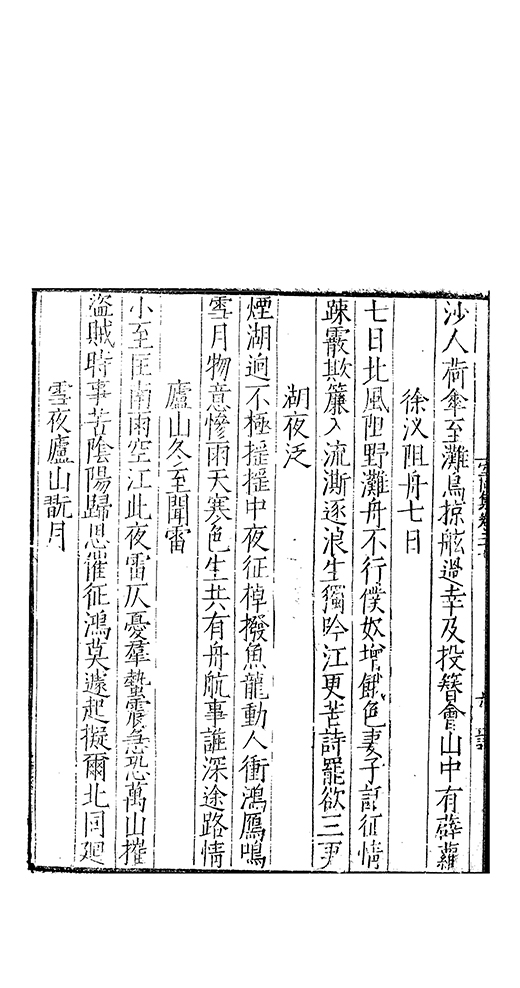 沙人荷傘至灘鳥掠舷過幸及投簪會山中有薜蘿
徐汊阻舟七日
七日北風阻野灘舟不行僕奴增餓色妻子訝征情
踈霰欺簾入流澌逐浪生獨吟江更苦詩罷欲三更
湖夜泛
煙湖逈不極摇摇中夜征棹撥魚龍動人衝鴻鴈鳴
雪月物意慘雨天寒色生共有舟航事誰深途路情
廬山冬至聞雷
小至匡南雨空江此夜雷仄憂羣蟄震急恐萬山摧
盜賊時事苦陰陽歸思催征鴻莫遽起擬爾北同廻
雪夜廬山翫月